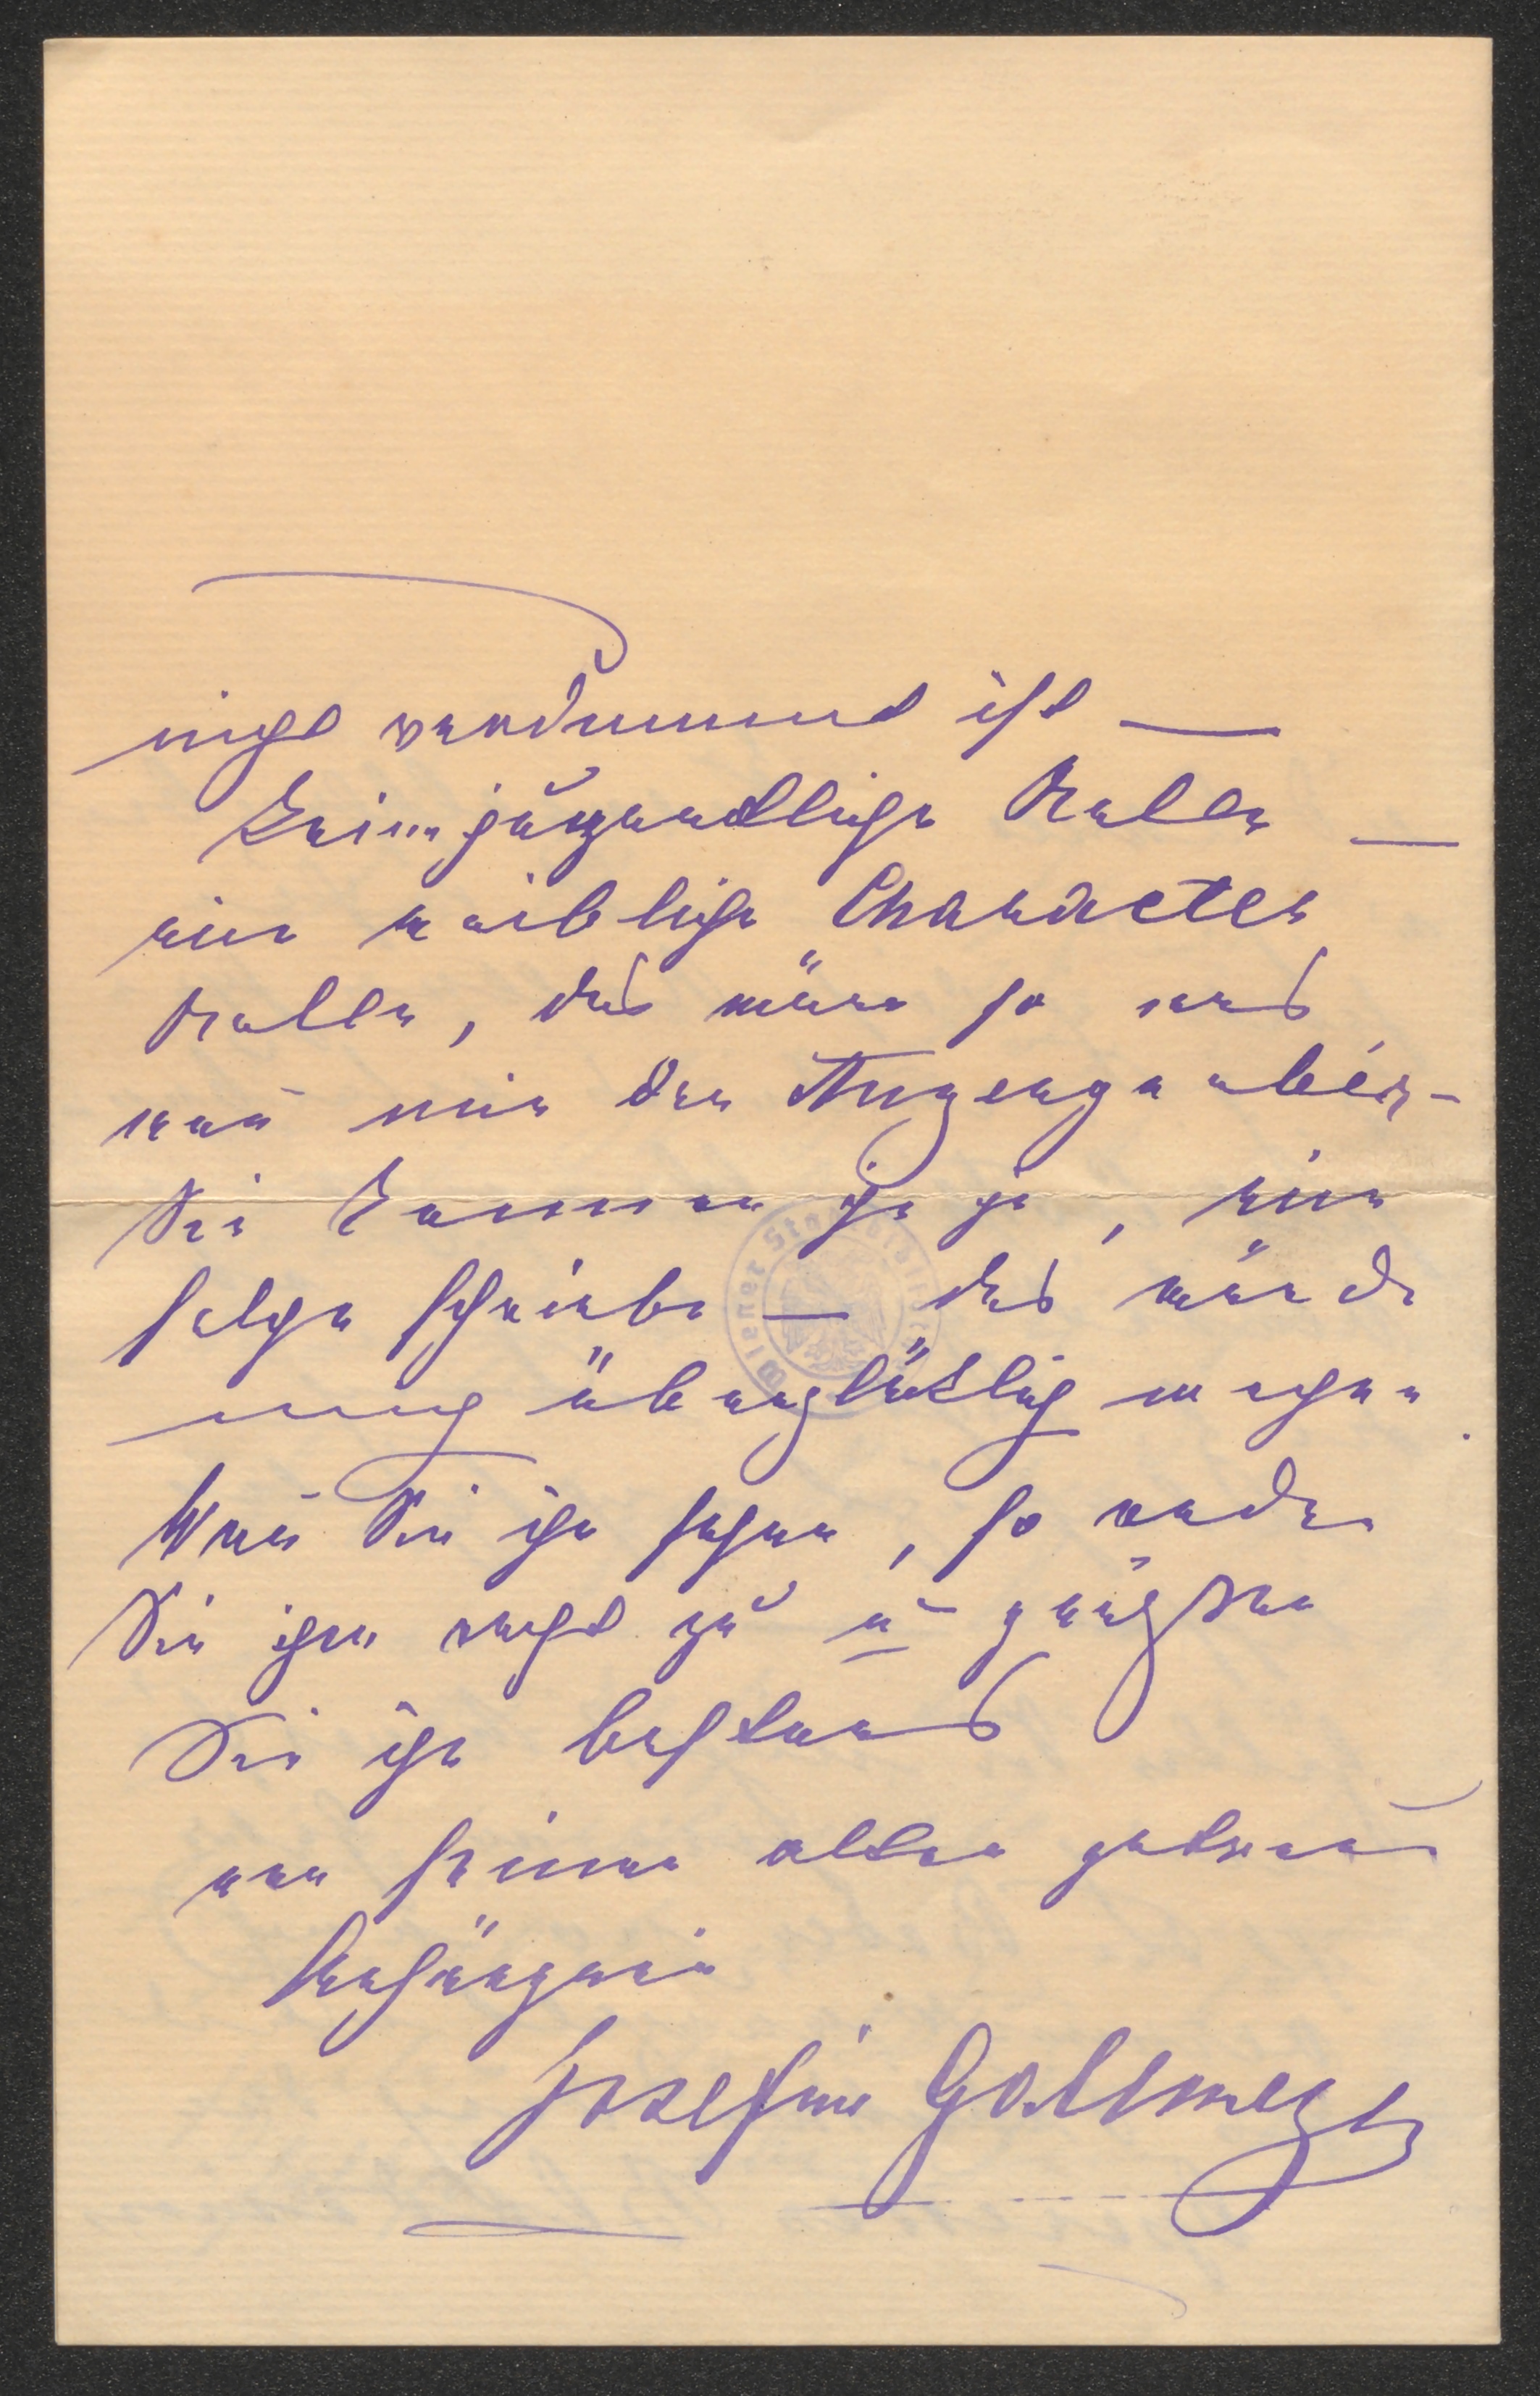 nicht verdummt ist —
Keine jugendliche Rolle —
eine weibliche Character
Rolle, das wäre so was
wen̄ mir der Anzengruber –
Sie kennen ihn ja, eine
solche schriebe — das würde
mich überglücklich machen.
Wen̄ Sie ihn sehen, so reden
Sie ihm recht zu u grüßen
Sie ihn bestens
von seiner alten getreuen
Verehrerin
Josefine Gallmeyer
Wiener Stadtbibliothek